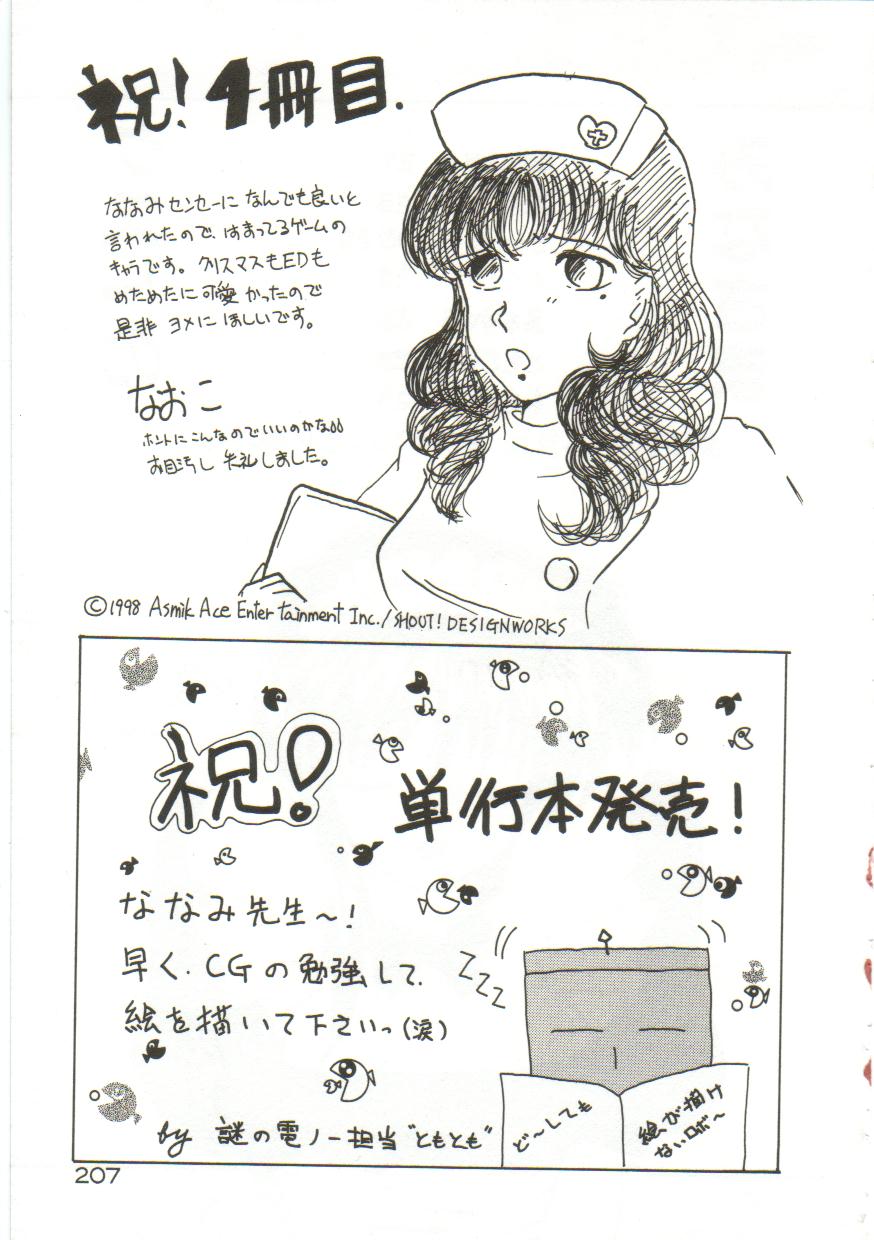 祝！4冊目.
ななみセンセーに なんでも良いと
言われたので、はまってるゲームの
キャラです。クリスマスもEDも
めためたに可愛かったので
是非 ヨメに ほしいです。
なおこ
ホントにこんなのでいいのかなあ
お目汚し 失礼しました。
©1998 Asmik Ace Entertainment Inc./SHOUT! DESIGNWORKS
祝！
単行本発売！
ななみ先生〜！
早く、CGの勉強して、
絵を描いて下さいっ(涙)
ZZZ
ど〜しても
絵が描け
ないロボ〜
by 謎の電ノー担当"ともとも"
207